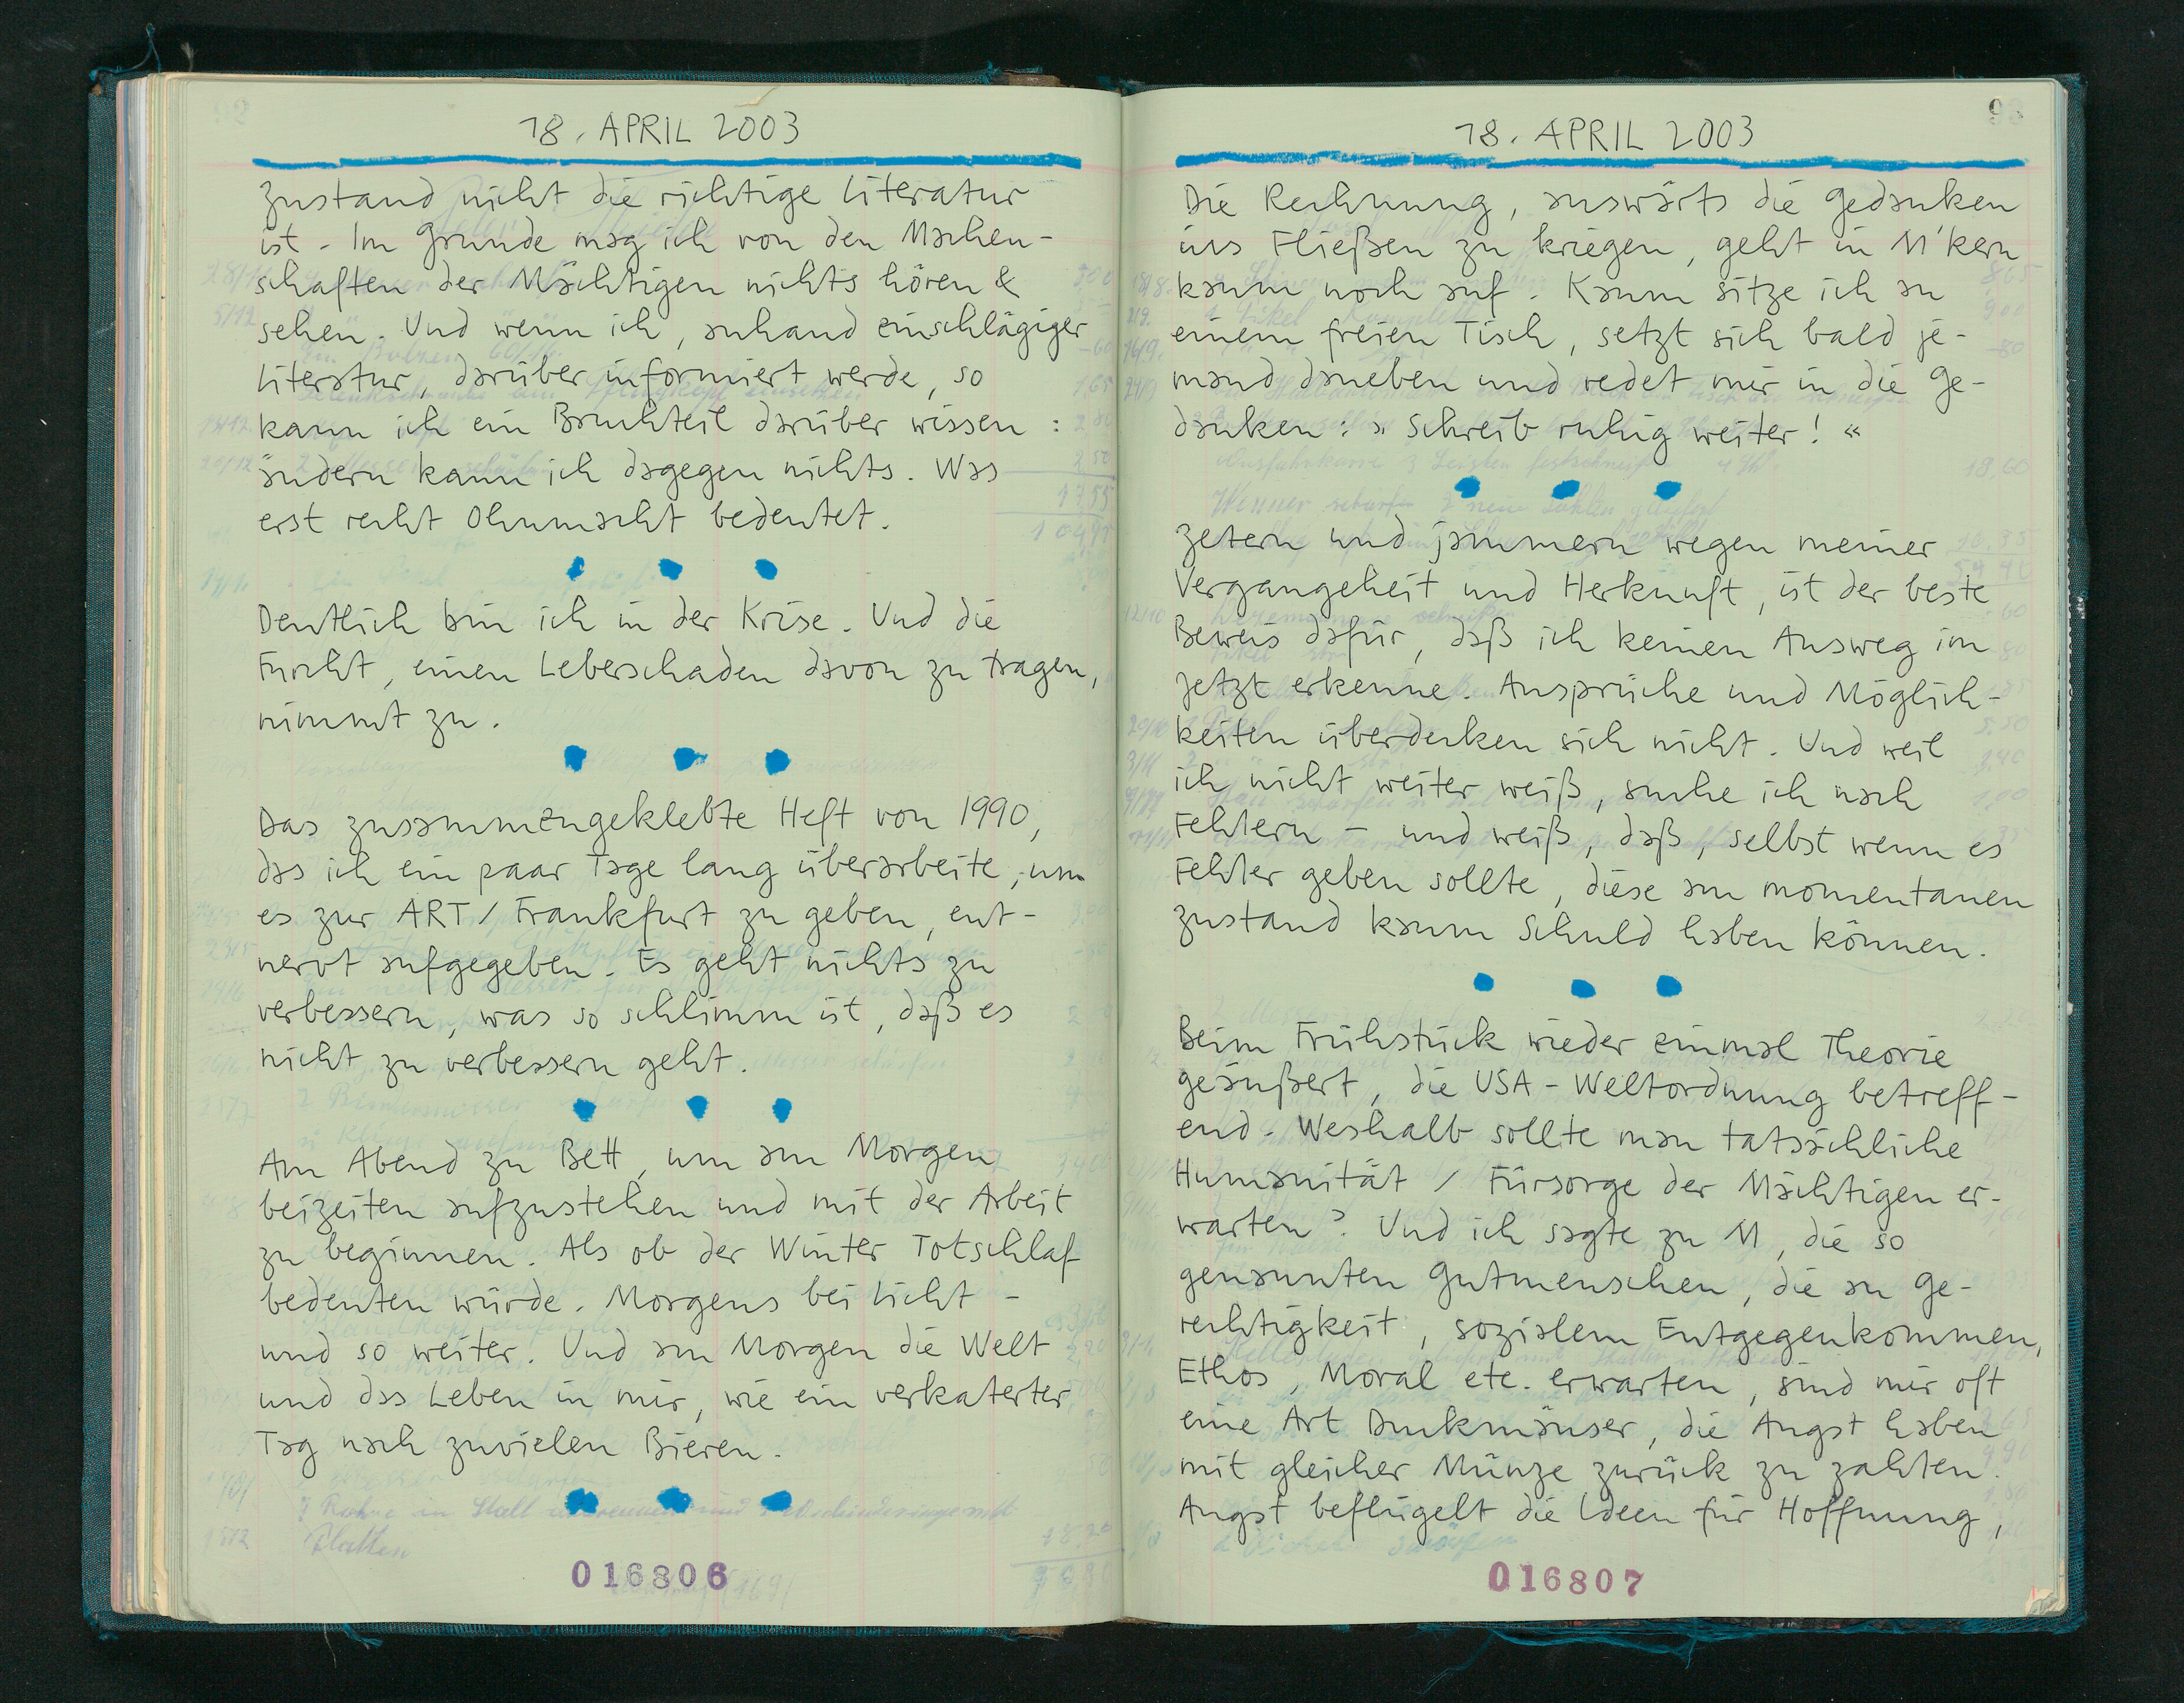 18. APRIL 2003
Zustand nicht die richtige Literatur
ist. Im Grunde mag ich von den Machen-
schaften der Mächtigen nichts hören &
sehen. Und wenn ich, anhand einschlägiger
Literatur, darüber informiert werde, so
kann ich ein Bruchteil darüber wissen :
ändern kann ich dagegen nichts. Was
erst recht Ohnmacht bedeutet.
Deutlich bin ich in der Krise. Und die
Furcht, einen Leberschaden davon zu tragen,
nimmt zu.
Das zusammengeklebte Heft von 1990,
das ich ein paar Tage lang überarbeite, um
es zur ART / Frankfurt zu geben, ent-
nervt aufgegeben. Es geht nichts zu
verbessern, was so schlimm ist, daß es
nicht zu verbessern geht.
Am Abend zu Bett, um am Morgen
beizeiten aufzustehen und mit der Arbeit
zu beginnen. Als ob der Winter Totschlaf
bedeuten würde. Morgens bei Licht -
und so weiter. Und am Morgen die Welt
und das Leben in mir, wie ein verkaterter
Tag nach zuvielen Bieren.
016806
18. APRIL 2003
Die Rechnung, auswärts die Gedanken
ins Fließen zu kriegen, geht in M'kern
kaum noch auf. Kaum sitze ich an
einem freien Tisch, setzt sich bald je-
mand daneben und redet mir in die Ge-
danken: » Schreib ruhig weiter! «
Zetern und jammern wegen meiner
Vergangeheit und Herkunft, ist der beste
Beweis dafür, daß ich keinen Ausweg im
Jetzt erkenne. Ansprüche und Möglich-
keiten überdecken sich nicht. Und weil
ich nicht weiter weiß, suche ich nach
Fehlern - und weiß, daß, selbst wenn es
Fehler geben sollte, diese am momentanen
Zustand kaum Schuld haben können.
Beim Frühstück wieder einmal Theorie
geäußert, die USA - Weltordnung betreff-
end. Weshalb sollte man tatsächliche
Humanität / Fürsorge der Mächtigen er-
warten? Und ich sagte zu M, die so
genannten Gutmenschen, die an Ge-
rechtigkeit, sozialem Entgegenkommen,
Ethos, Moral etc. erwarten, sind mir oft
eine Art Duckmäuser, die Angst haben
mit gleicher Münze zurück zu zahlen.
Angst beflügelt die Ideen für Hoffnung,
016807